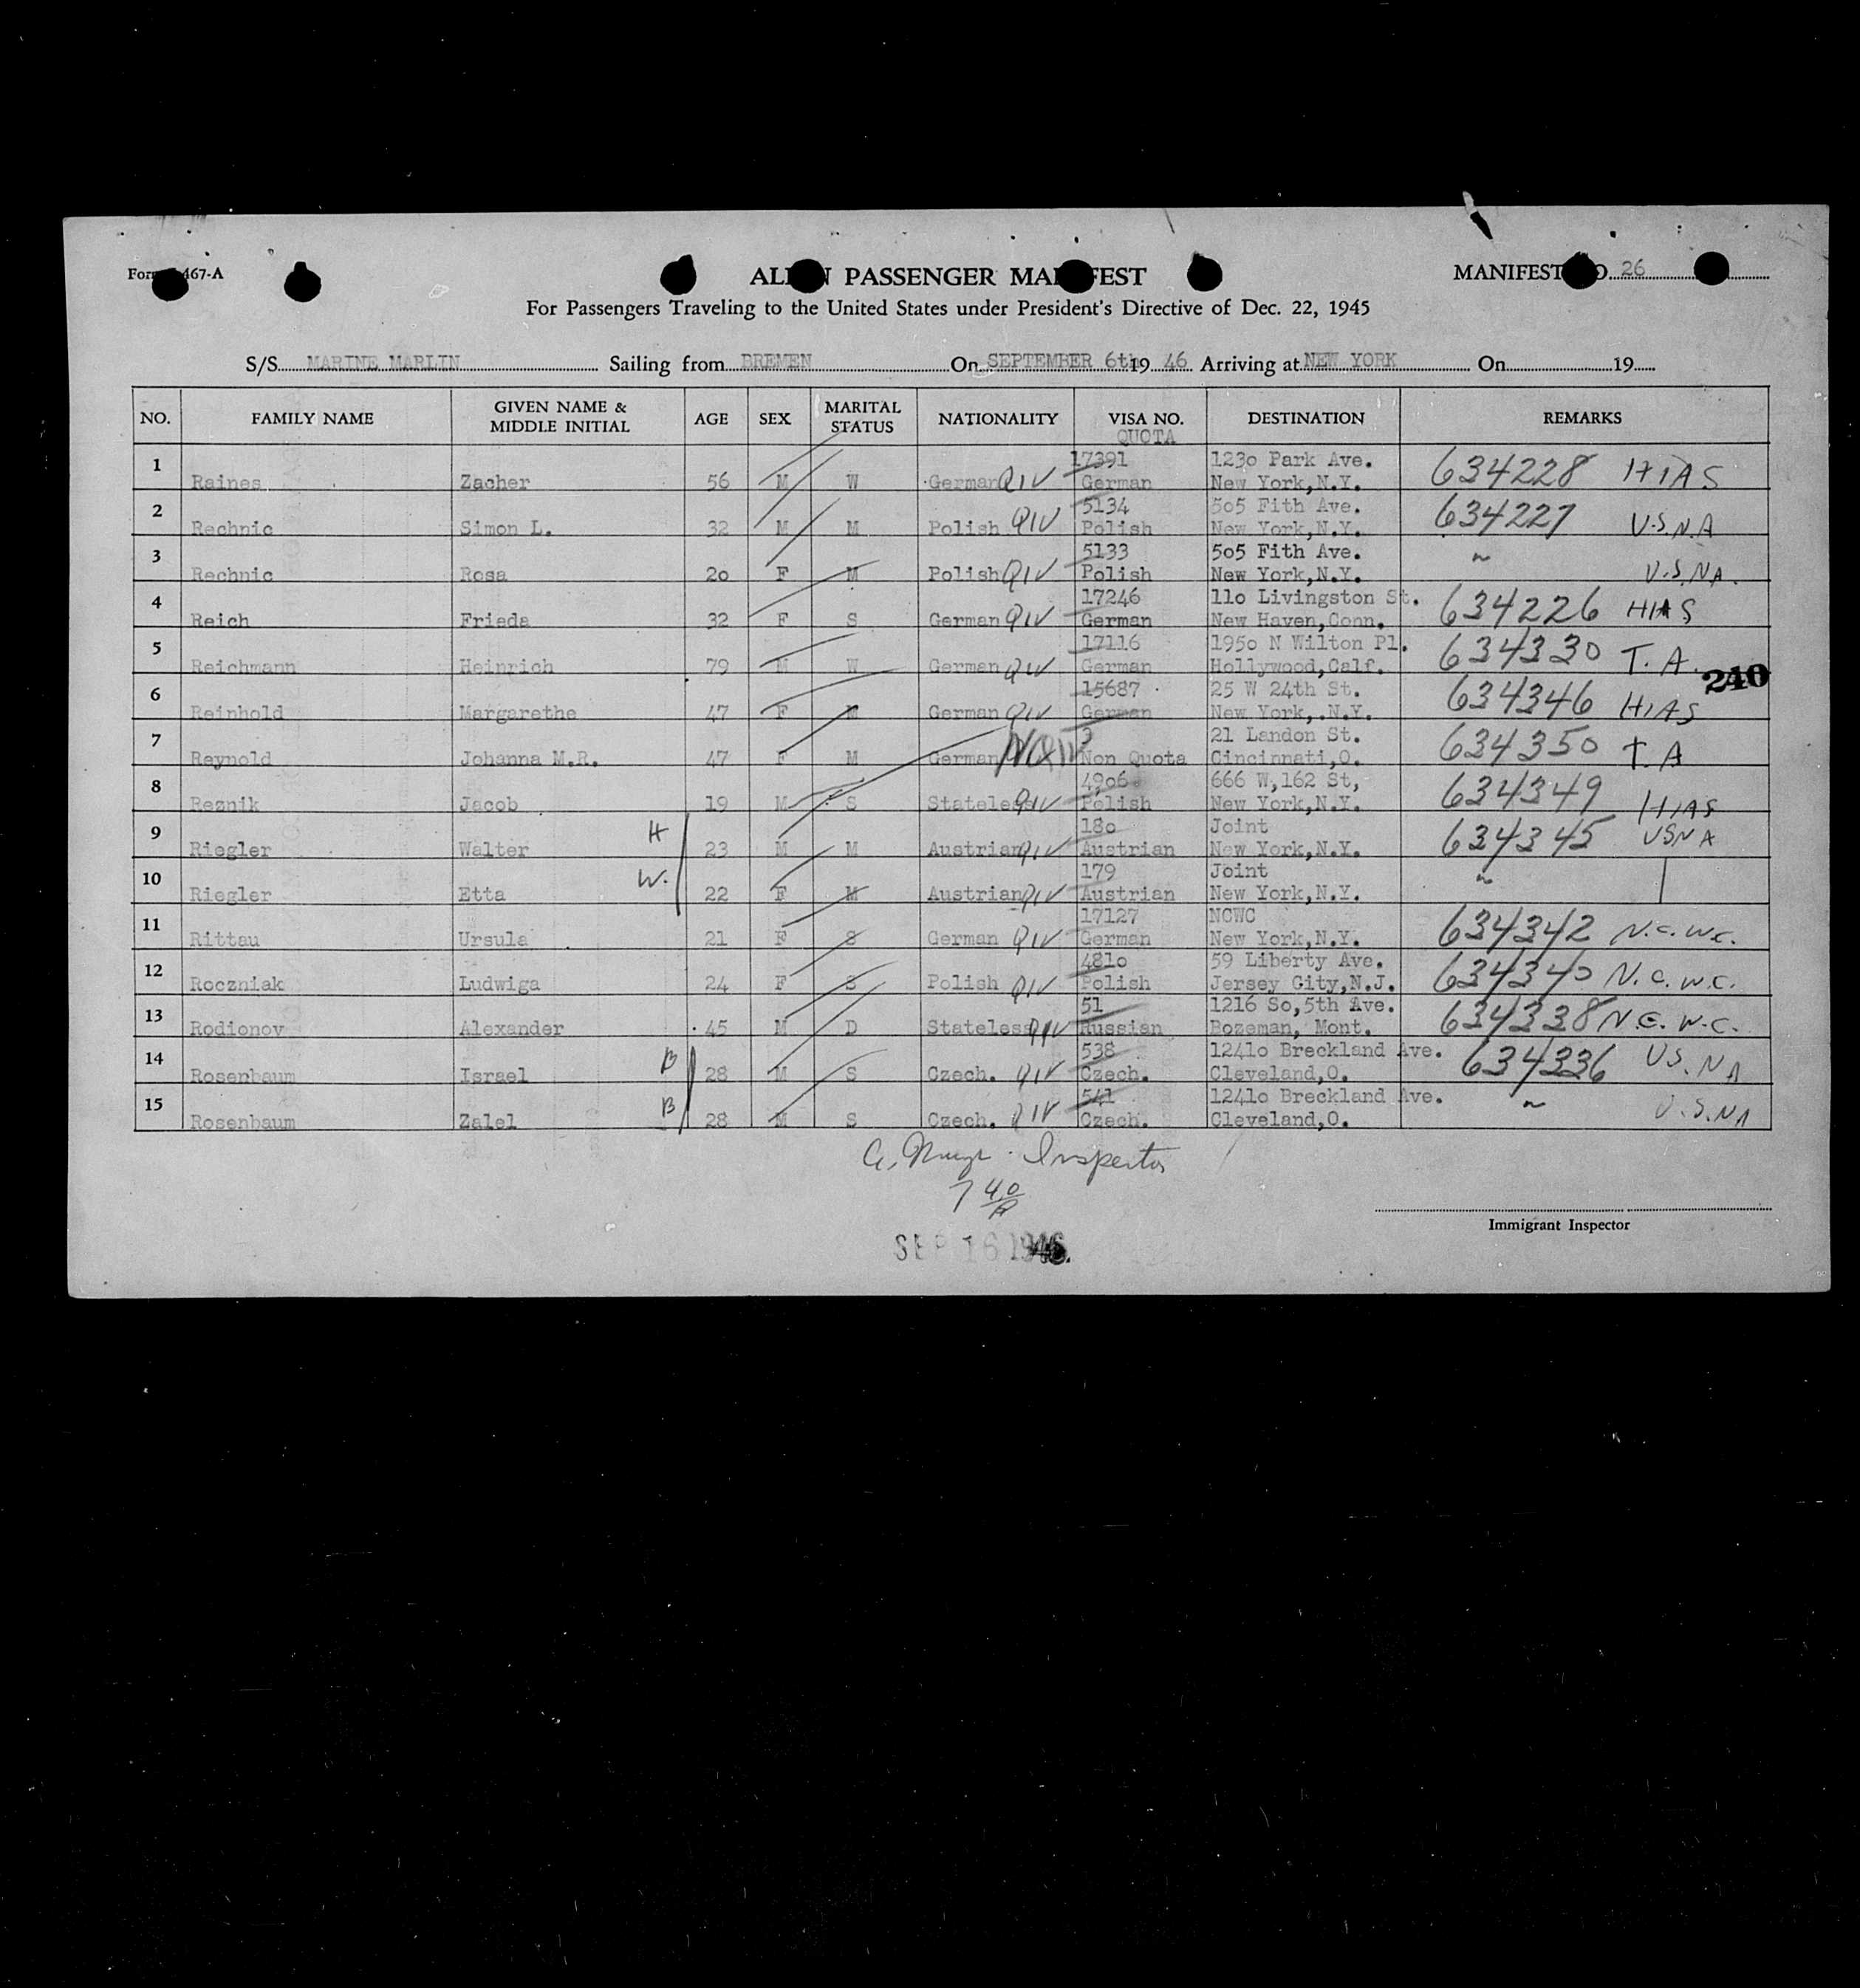 ALIEN PASSENGER MANIFEST
MANIFEST NO. 26
For Passengers Traveling to the United States under President's Directive of Dec. 22, 1945
S/S MARINE MARLIN Sailing from BREMEN On SEPTEMBER 6th 19 46 Arriving at NEW YORK On 19
NO. FAMILY NAME GIVEN NAME & MIDDLE INITIAL AGE SEX MARITAL STATUS NATIONALITY VISA NO. QUOTA DESTINATION REMARKS
1 17391 1230 Park Ave. 634228 HIAS
Raines Zacher 56 M W German QIV German New York,N.Y.
2 5134 505 Fith Ave. 634227 U.S.N.A
Rechnic Simon L. 32 M M Polish QIV Polish New York,N.Y.
3 5133 505 Fith Ave. ~ U.S.NA.
Rechnic Rosa 20 F M Polish QIV Polish New York,N.Y.
4 17246 110 Livingston St. 634226 HIAS
Reich Frieda 32 F S German QIV German New Haven,Conn.
5 17116 1950 N Wilton Pl. 634330 T.A.
Reichmann Heinrich 79 M W German QIV German Hollywood,Calf.
240
6 15687 25 W 24th St. 634346 HIAS
Reinhold Margarethe 47 F M German QIV German New York,.N.Y.
7 3 21 Landon St. 634350 T.A
Reynold Johanna M.R. 47 F M German NQIV Non Quota Cincinnati,O.
8 4906 666 W,162 St, 634349 HIAS
Reznik Jacob 19 M S Stateless QIV Polish New York,N.Y.
9 H 180 Joint 634345 USNA
Riegler Walter 23 M M Austrian QIV Austrian New York,N.Y.
10 W. 179 Joint ~
Riegler Etta 22 F M Austrian QIV Austrian New York,N.Y.
11 17127 NCWC 634342 N.C.W.C.
Rittau Ursula 21 F S German QIV German New York,N.Y.
12 4810 59 Liberty Ave. 634340 N.C.W.C.
Roczniak Ludwiga 24 F S Polish QIV Polish Jersey City,N.J.
13 51 1216 So,5th Ave. 634338 N.C.W.C.
Rodionov Alexander 45 M D Stateless QIV Russian Bozeman, Mont.
14 B 538 12410 Breckland Ave. 634336 US.NA
Rosenbaum Israel 28 M S Czech. QIV Czech. Cleveland,O.
15 B 541 12410 Breckland Ave. ~ U.S.NA
Rosenbaum Zalel 28 M S Czech. QIV Czech. Cleveland,O.
Inspector
7 40/A
Immigrant Inspector
SEP 16 1946